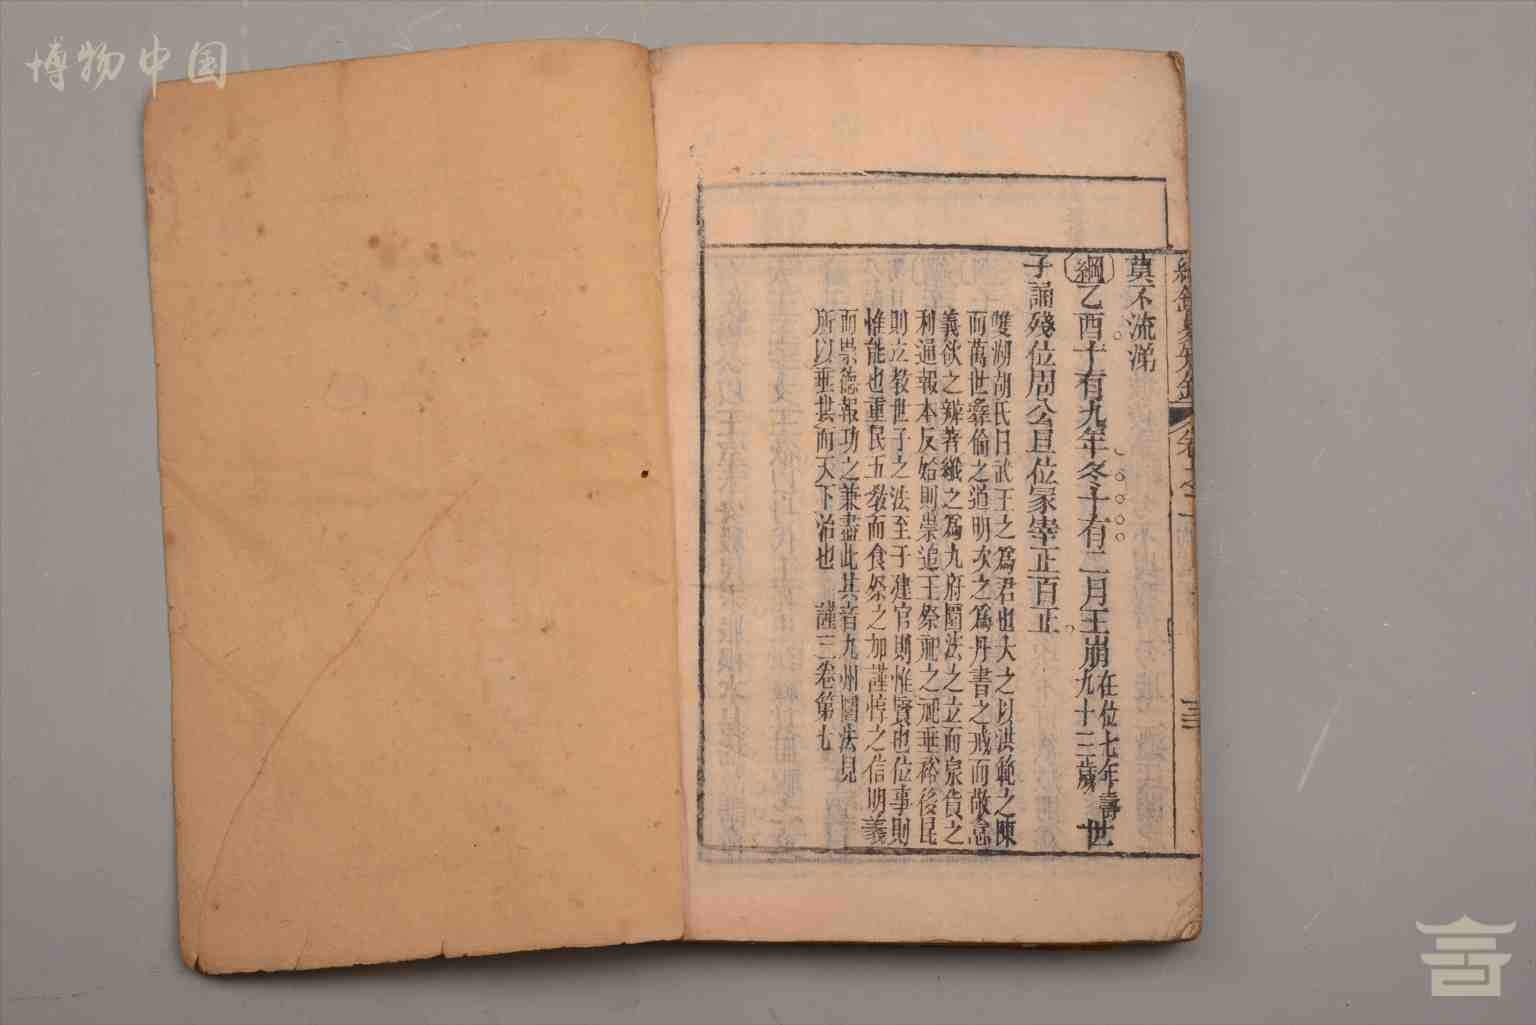 博物中国
綱鑑易知錄
莫不流涕
綱乙酉十有九年冬十有二月王崩在位七年壽九十三歲世
子誦殘位周公旦位冡宰正百
雙湖胡氏曰武王之爲君也大之以洪範之陳
而萬世彝倫之道明次之爲丹書之戒而敬怠
義欲之辨著繼之爲九府圜法之立而泉貨之
利通報本反始則崇追王祭祀之祀垂裕後昆
則立教世子之法至于建官則惟賢也位事則
惟能也重民五敎而食祭之加謹惇之信明義
而崇德報功之兼盡此其音九州圜法見
所以垂拱而天下治也 謹三卷第七